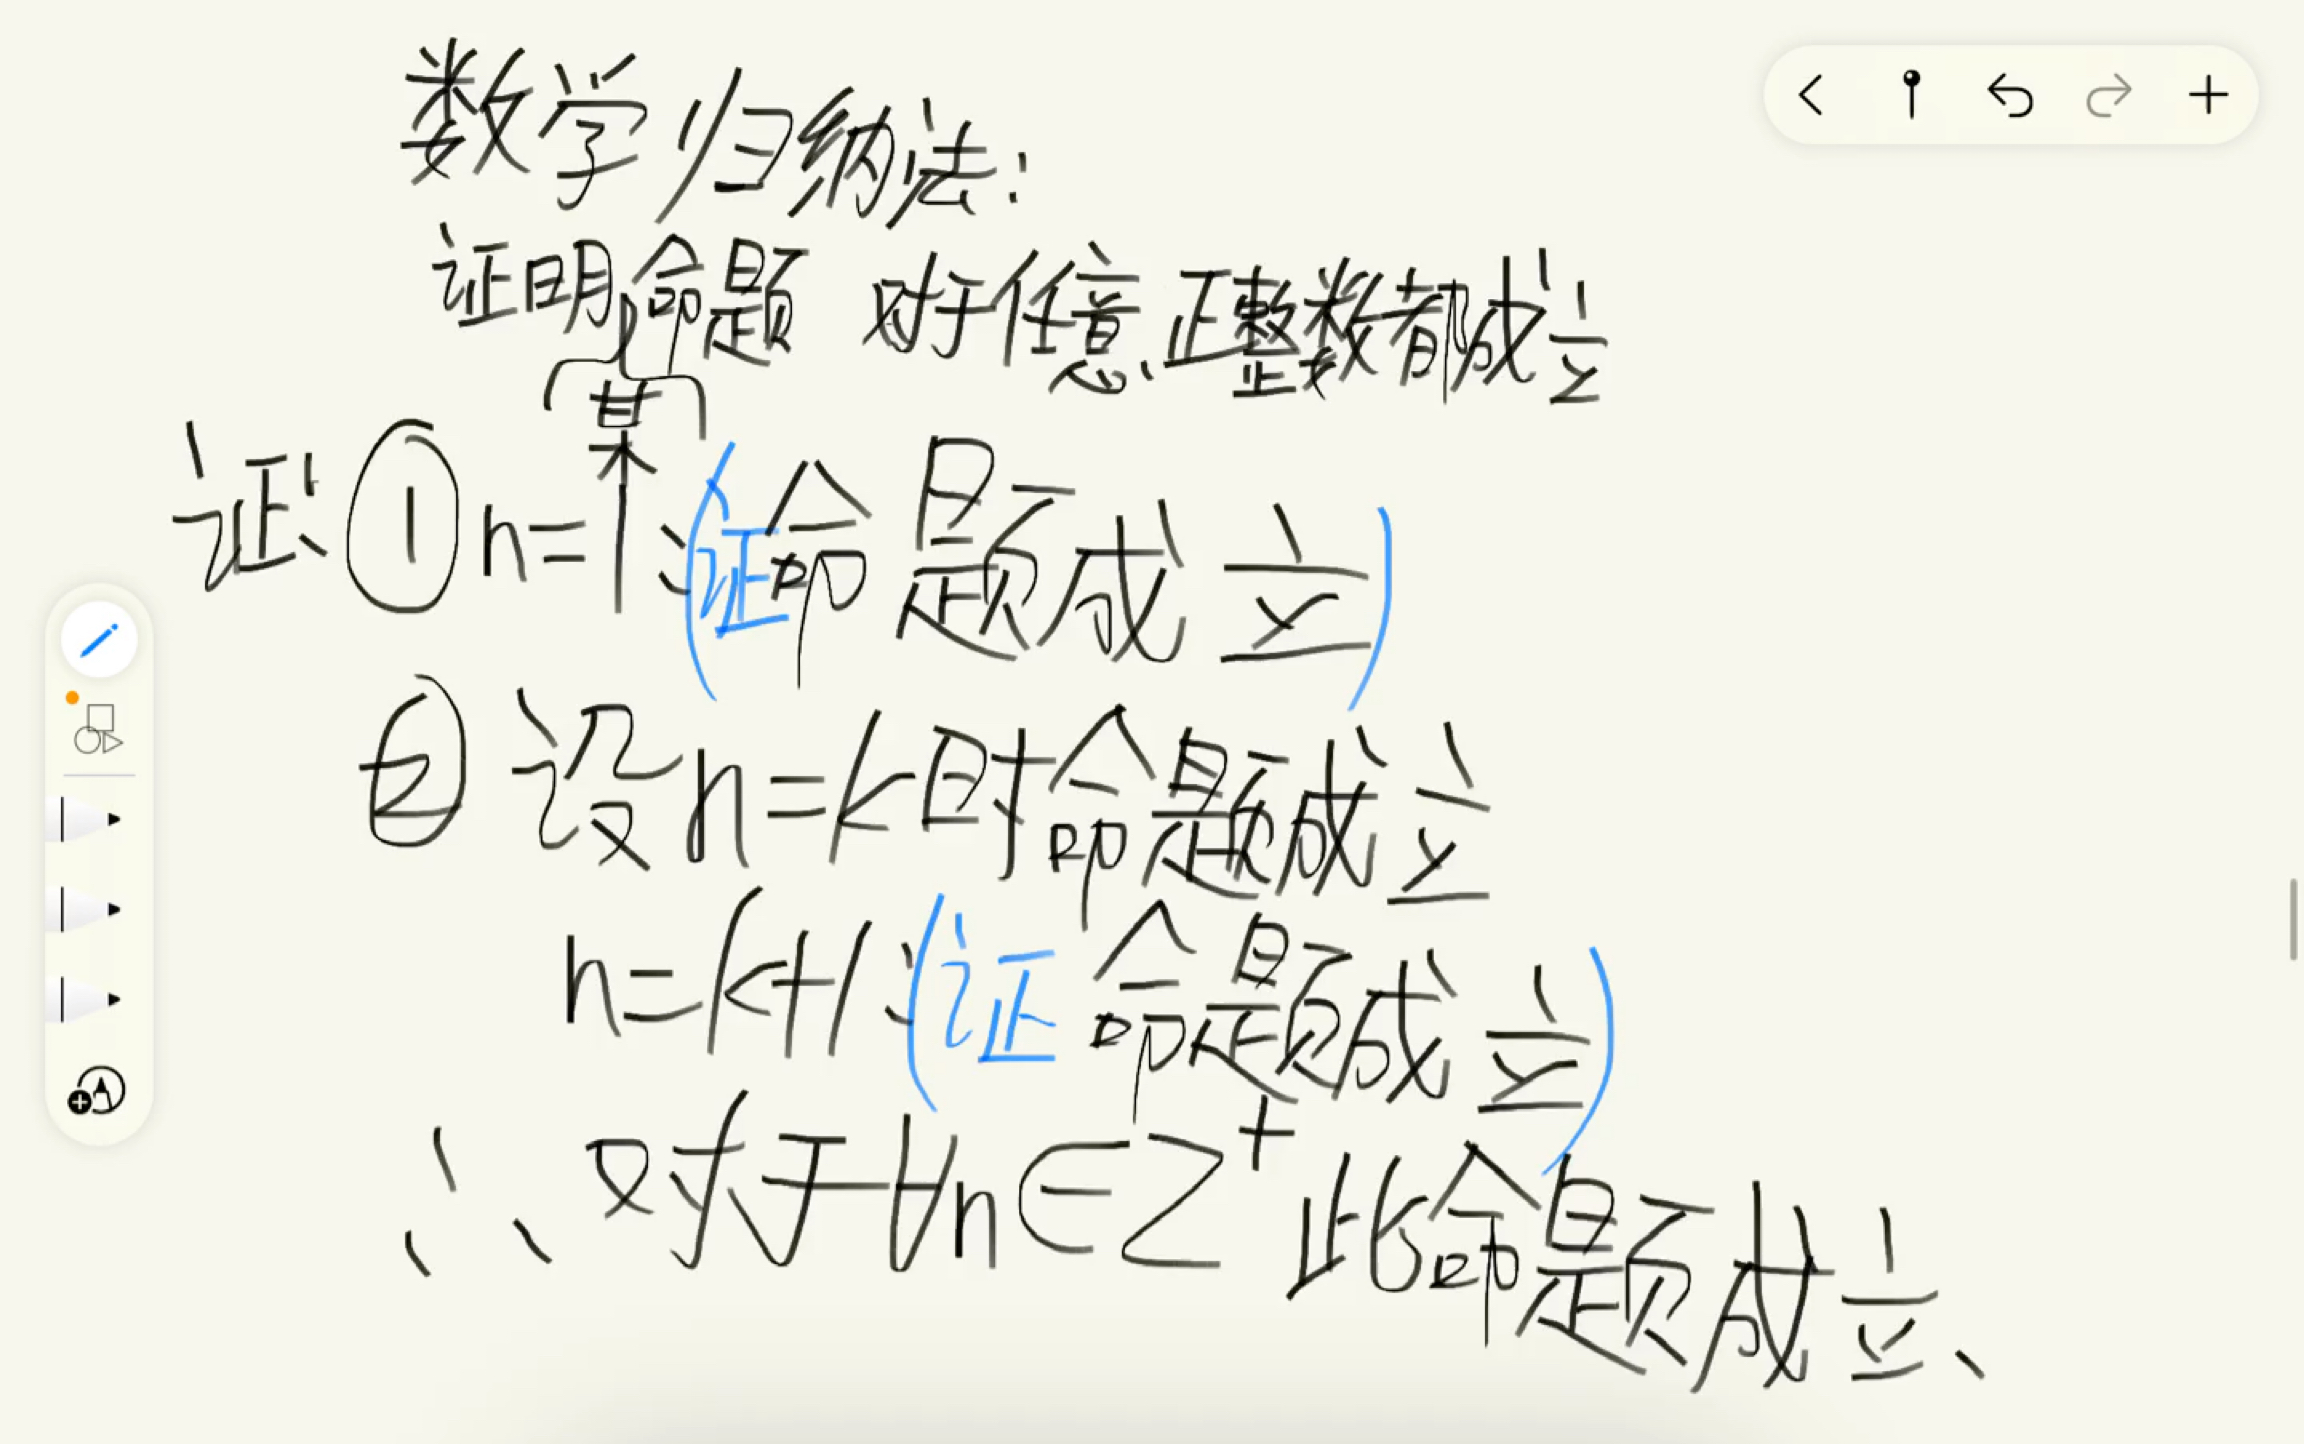 数学归纳法:
证明某命题 对于任意正整数都成立
证 ① n=1:(证命题成立)
② 设n=k时命题成立
n=k+1:(证 命题成立)
∴ 对于∀n∈Z⁺此命题成立、